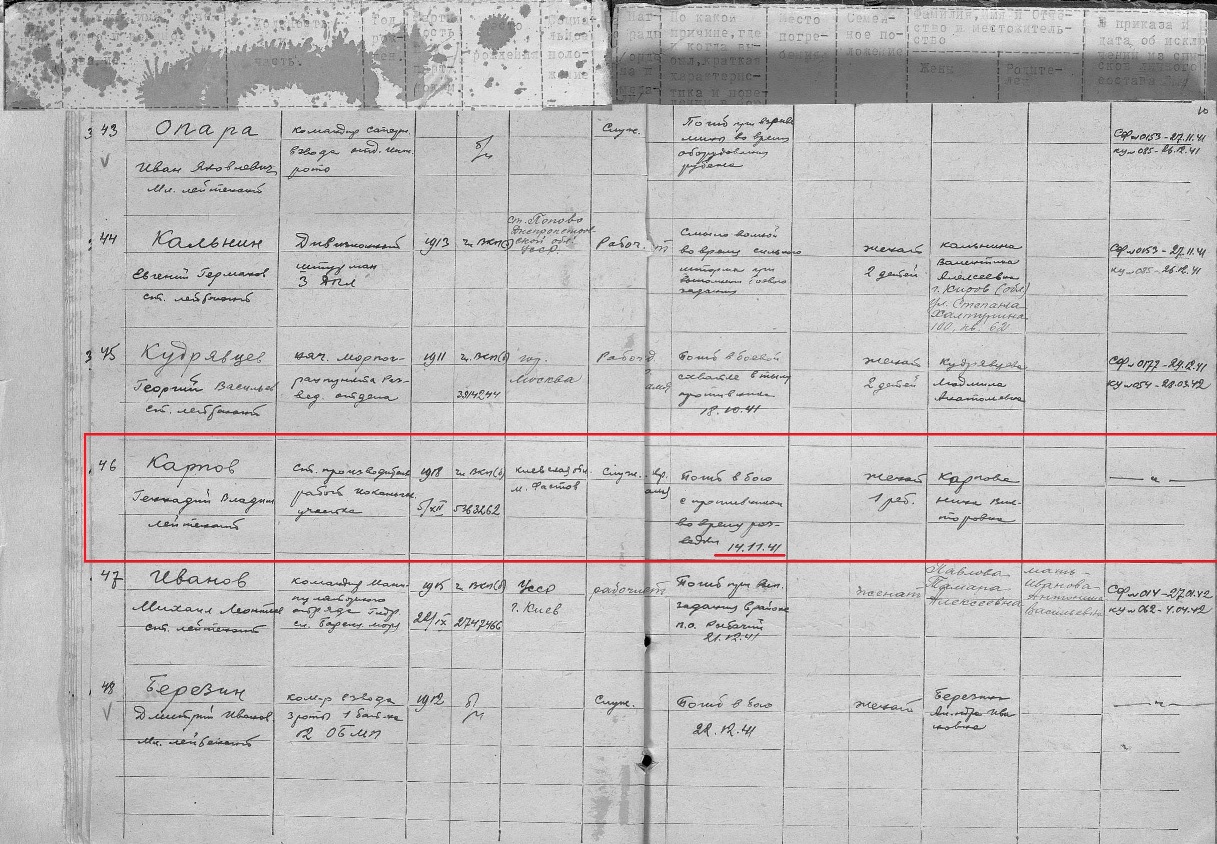 По какой
Место
Семей
Фамилия, имя и Отче-
№ приказа и
часть.
причине, где
погре-
ное по-
ство и местожитель-
дата об исклю
и когда вы-
ложение
ство
был, краткая
Жена
Родите-
характерис-
тика и номе
10
43
Опара
Иван Яковлевич
Мл. лейтенант
командир сапер.
взвода отд. инж.
роты
б/п
Служ.
Погиб при взрыве
мины во время
оборудования
рубежа
СФ №0153-27.11.41
ку №085-26.12.41
44
Кальнин
Евгений Германов
ст. лейтенант
Дивизионный
штурман
3
1913
чл. ВКП(б)
ст. Попово
Днепропетров-
ской обл.
УССР
Рабоч.
Смыло волной
во время сильного
шторма при
выполнении боевого
задания
женат
2 детей
Кальнина
Валентина
Алексеевна
г. Киров (обл)
ул. Степана
Халтурина
100, кв. 62
СФ №0153-27.11.41
ку №085-26.12.41
45
Кудрявцев
Георгий Васильев
ст. лейтенант
нач. морпог-
ранпункта Раз-
вед. отдела
1911
чл. ВКП(б)
3914244
гор.
Москва
Рабоч
Погиб в боевой
схватке в тылу
противника
18.10.41
женат
2 детей
Кудрявцева
Людмила
Анатольевна
СФ №0177-29.12.41
ку №054-28.03.42
46
Карпов
Геннадий Владим
лейтенант
ст. производитель
работ
участка
1918
5/XII
чл. ВКП(б)
5363262
киевская обл.
м. Фастов
Служ.
Погиб в бою
с противником
во время раз-
ведки 14.11.41
женат
1 реб.
Карпова
Нина Вик-
торовна
— " —
47
Иванов
Михаил Леонтьев
ст. лейтенант
командир Мани-
пуляторного
отряда Гидр.
сл. Беломор
1915
22/IX
чл. ВКП(б)
2747466
УССР
г. Киев
рабочий
Погиб при вып.
задания в районе
п.о. Рыбачий
21.12.41
женат
Павлова
Тамара
Алексеевна
мать-
Иванова
Антонина
Васильевна
СФ №014-27.01.42
ку №062-4.04.42
48
Березин
Дмитрий Иванов
Мл. лейтенант
комдр взвода
3 роты 1 бат-на
12 ОБМП
1912
б/п
Служ.
Погиб в бою
22.12.41
женат
Березина
Ива
новна
— " —